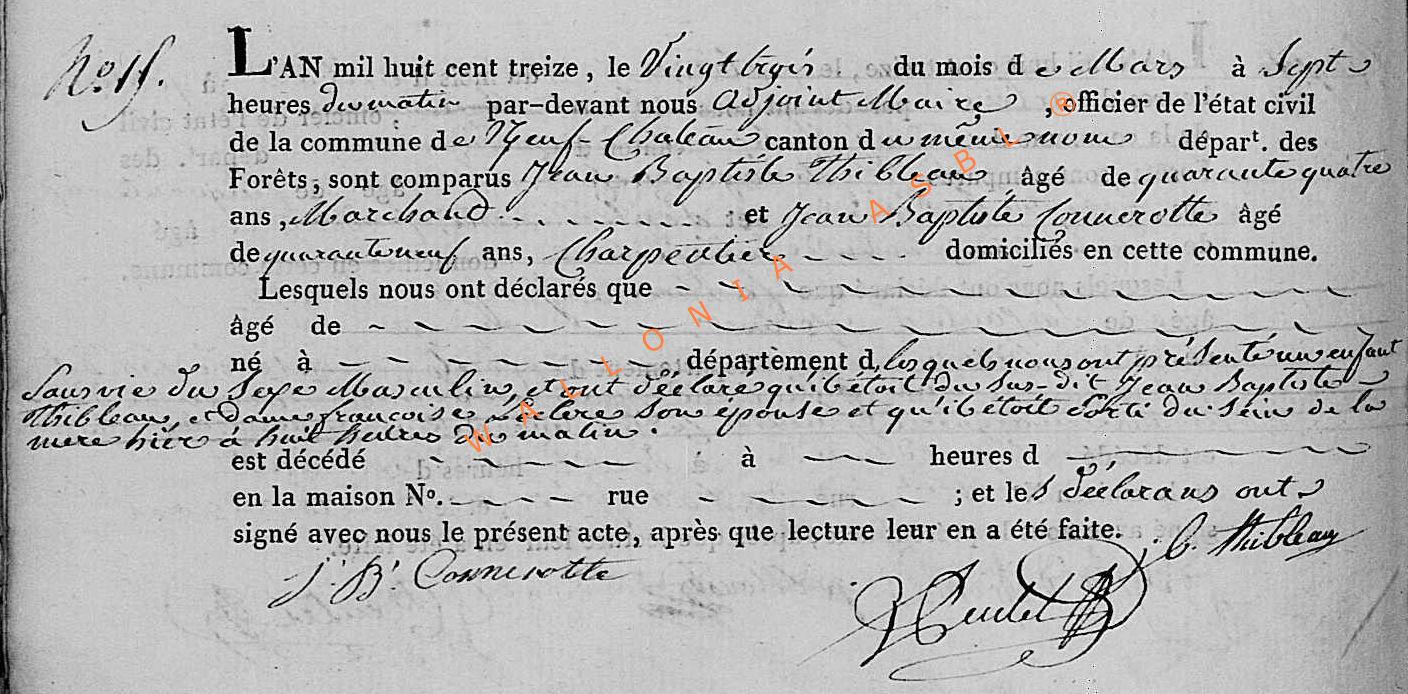 No. 15.
L'AN mil huit cent treize, le Vingt trois du mois de Mars à Sept
heures du matin par-devant nous adjoint Maire, officier de l'état civil
de la commune de Neuf-Chateau canton du même nom départ. des
Forêts, sont comparus Jean Baptiste Thibleau, âgé de quarante quatre
ans, Marchand et Jean Baptiste Connerotte âgé
de quarante neuf ans, Charpentier domiciliés en cette commune.
Lesquels nous ont déclarés que
âgé de
né à département d lesquels nous ont présenté un enfant
Sans vie du Sexe Masculin, et ont déclaré qu'il étoit du Sus-dit Jean Baptiste
Thibleau, et dame françoise son épouse et qu'il étoit sorti du sein de la
mere hier à huit heures du matin.
est décédé à heures d
en la maison No. rue ; et les déclarans ont
signé avec nous le présent acte, après que lecture leur en a été faite.
Thibleau
J. B. Connerotte
WALLONIA ASBL ®